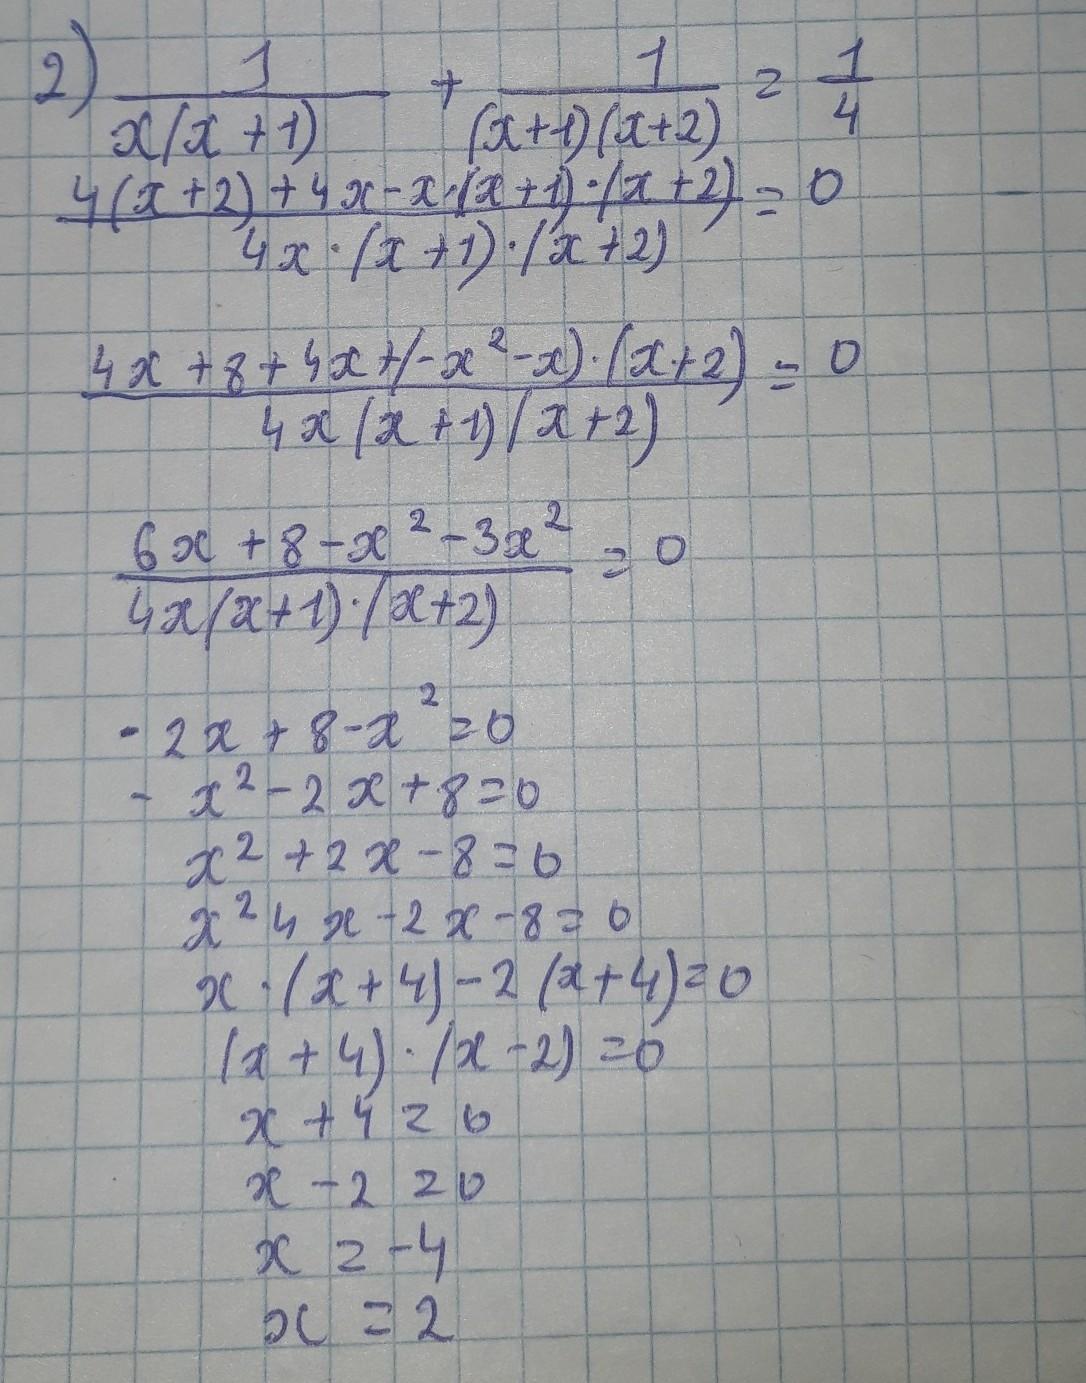 2) 1/(x(x+1)) + 1/((x+1)(x+2)) = 1/4
(4(x+2)+4x-x·(x+1)·(x+2))/(4x·(x+1)·(x+2)) = 0
(4x+8+4x+(-x²-x)·(x+2))/(4x(x+1)(x+2)) = 0
(6x+8-x²-3x²)/(4x(x+1)·(x+2)) = 0
-2x+8-x²=0
-x²-2x+8=0
x²+2x-8=0
x²4x-2x-8=0
x·(x+4)-2(x+4)=0
(x+4)·(x-2)=0
x+4=0
x-2=0
x=-4
x=2